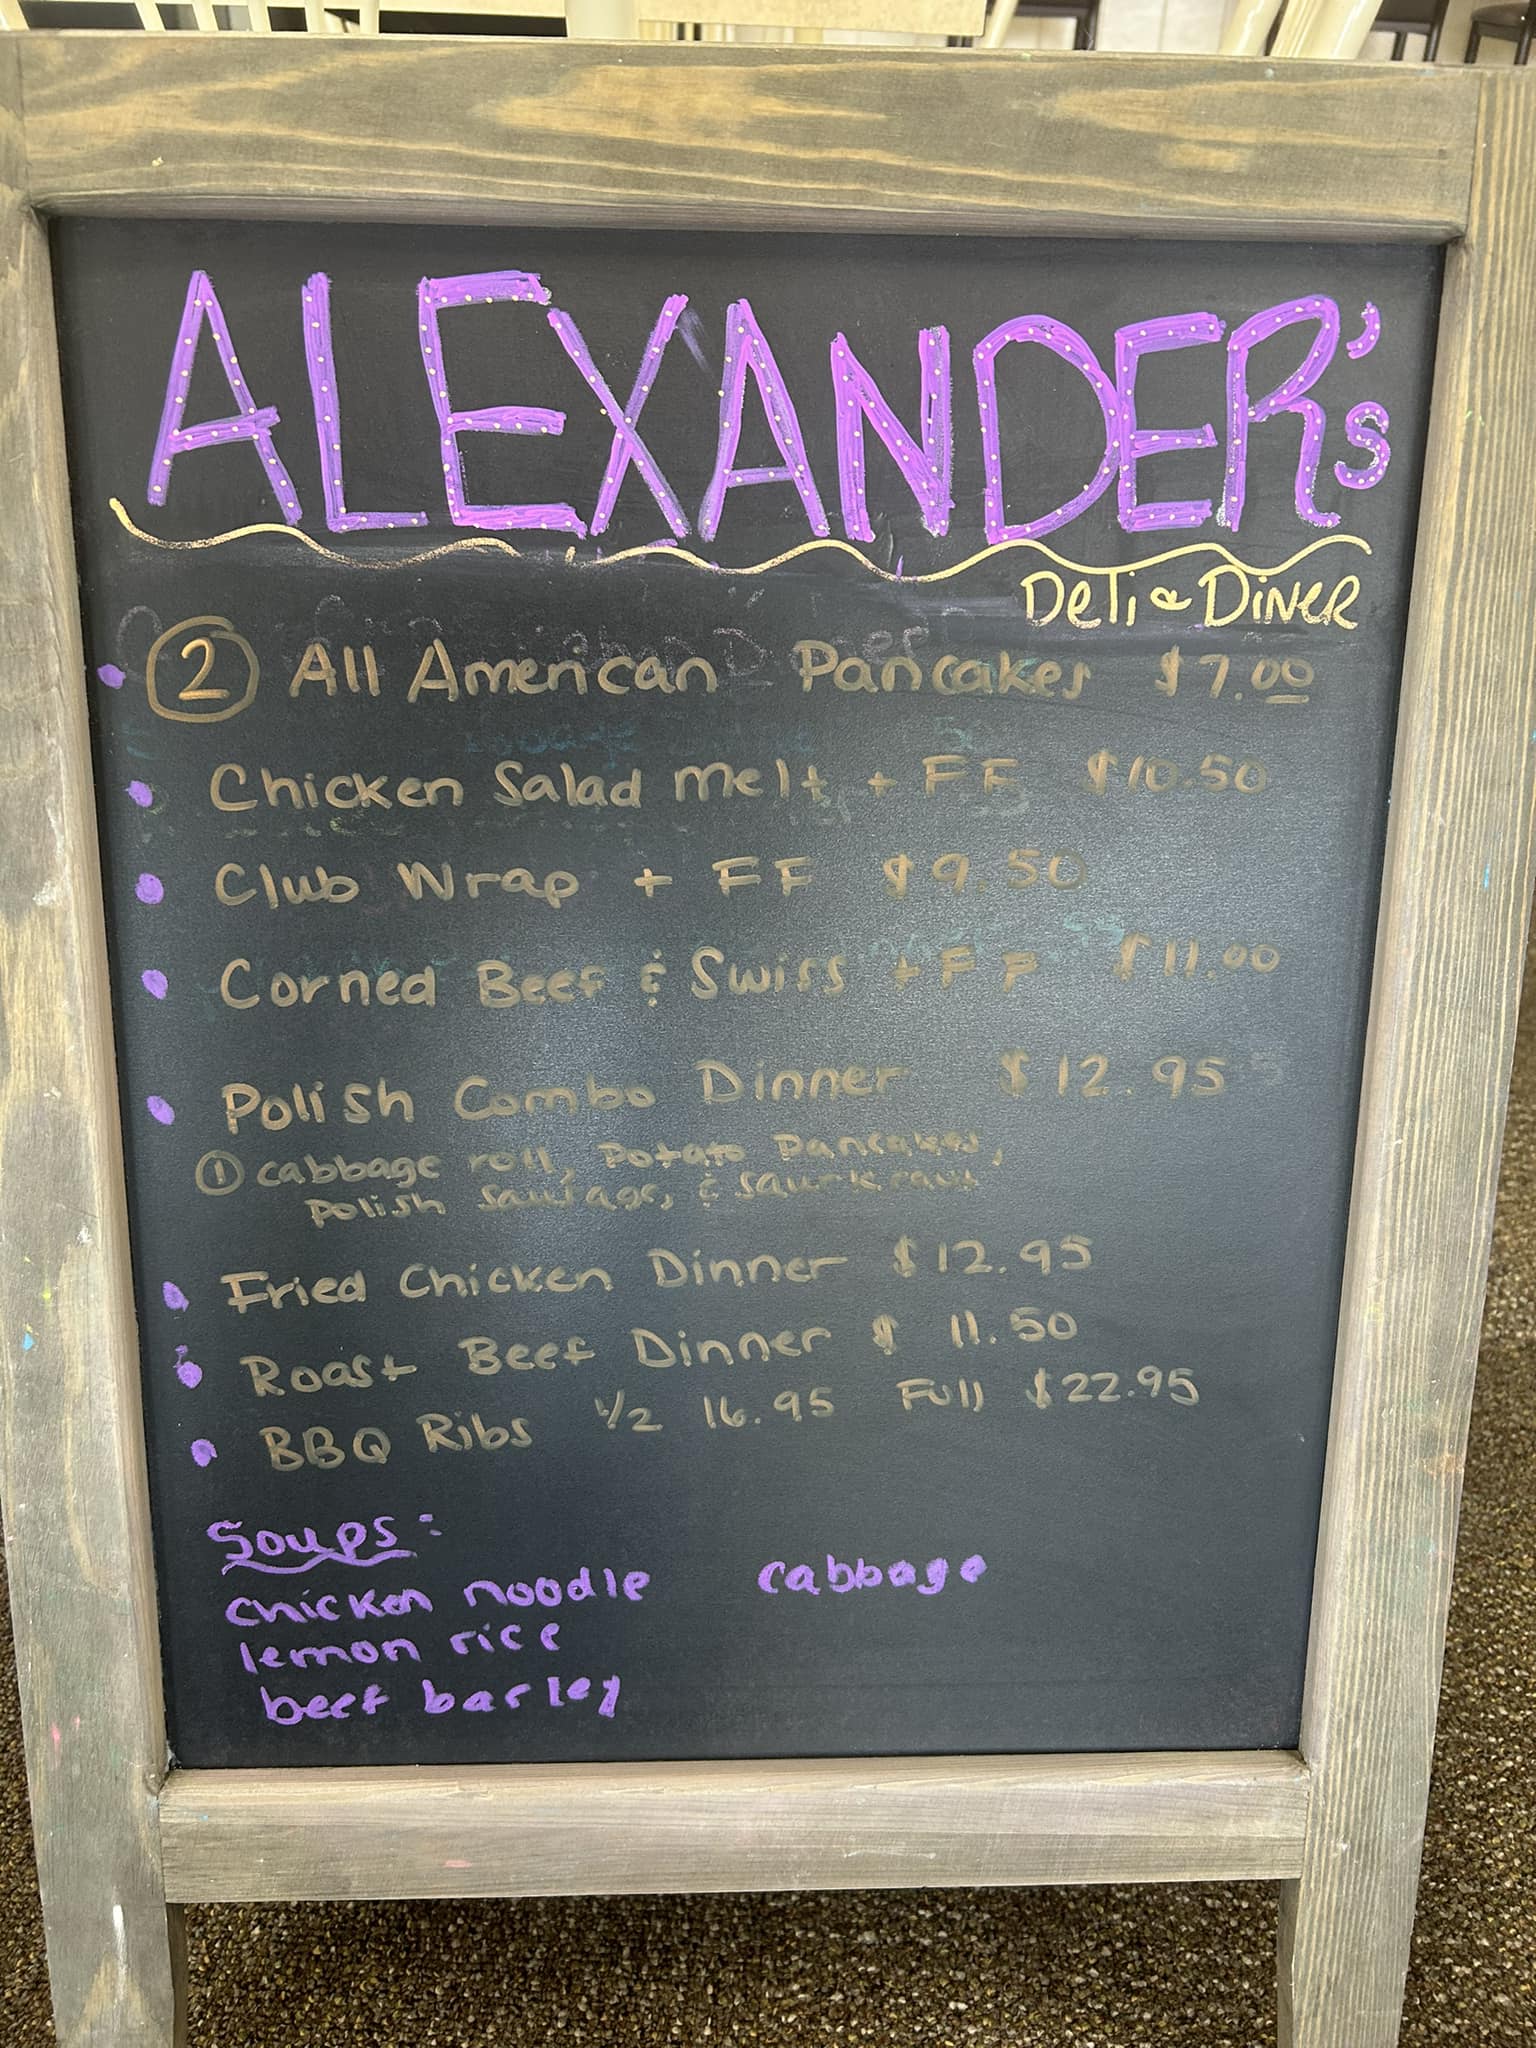 ALEXANDER's
Deli & Diner
② All American Pancakes $7.00
Chicken Salad melt + FF $10.50
Club Wrap + FF $9.50
Corned Beef & Swiss + FF $11.00
Polish Combo Dinner $12.95
① cabbage roll, Potato Pancakes,
Polish sausage, & saurkraut
Fried Chicken Dinner $12.95
Roast Beef Dinner $ 11.50
BBQ Ribs 1/2 16.95 Full $22.95
Soups:
chicken noodle cabbage
lemon rice
beef barley